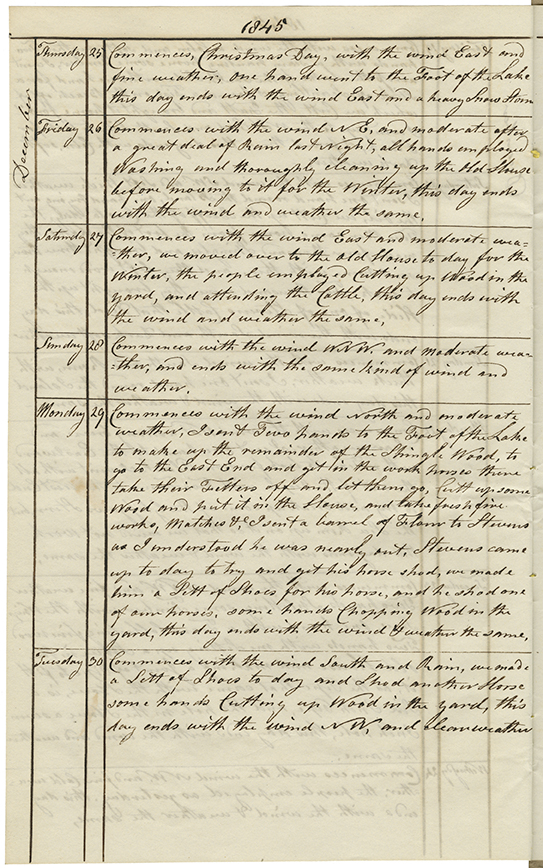 1845
December
Thursday 25 Commences, Christmas Day, with the wind East and
fine weather, one hand went to the Foot of the Lake
this day ends with the wind East and a heavy Snow Storm
Friday 26 Commences with the wind N.E, and moderate after
a great deal of Rain last Night, all hands employed
Washing and thoroughly cleaning up the Old House
before moving to it for the Winter, this day ends
with the wind and weather the same.
Saturday 27 Commences with the wind East and moderate wea-
-ther, we moved over to the old House to day for the
Winter, the people employed Cutting up Wood in the
yard, and attending the Cattle, this day ends with
the wind and weather the same,
Sunday 28 Commences with the wind W.N.W. and moderate wea-
-ther, and ends with the same kind of wind and
weather.
Monday 29 Commences with the wind North and moderate
weather, I sent Two hands to the Foot of the Lake
to make up the remainder of the Shingle Wood, to
go to the East End and get in the work horses there
take their Fetters off and let them go, Cutt up some
Wood and put it in the House, and take fresh fire
works, Matches &c, I sent a barrel of Flour to Stevens
as I understood he was nearly out, Stevens came
up to day to try and get his horse shod, we made
him a Sett of Shoes for his horse, and he shod one
of our horses, some hands Chopping Wood in the
yard, this day ends with the wind & weather the same,
Tuesday 30 Commences with the wind South and Rain, we made
a Sett of Shoes to day and Shod another Horse
some hands Cutting up Wood in the yard, this
day ends with the wind N.W, and clear weather